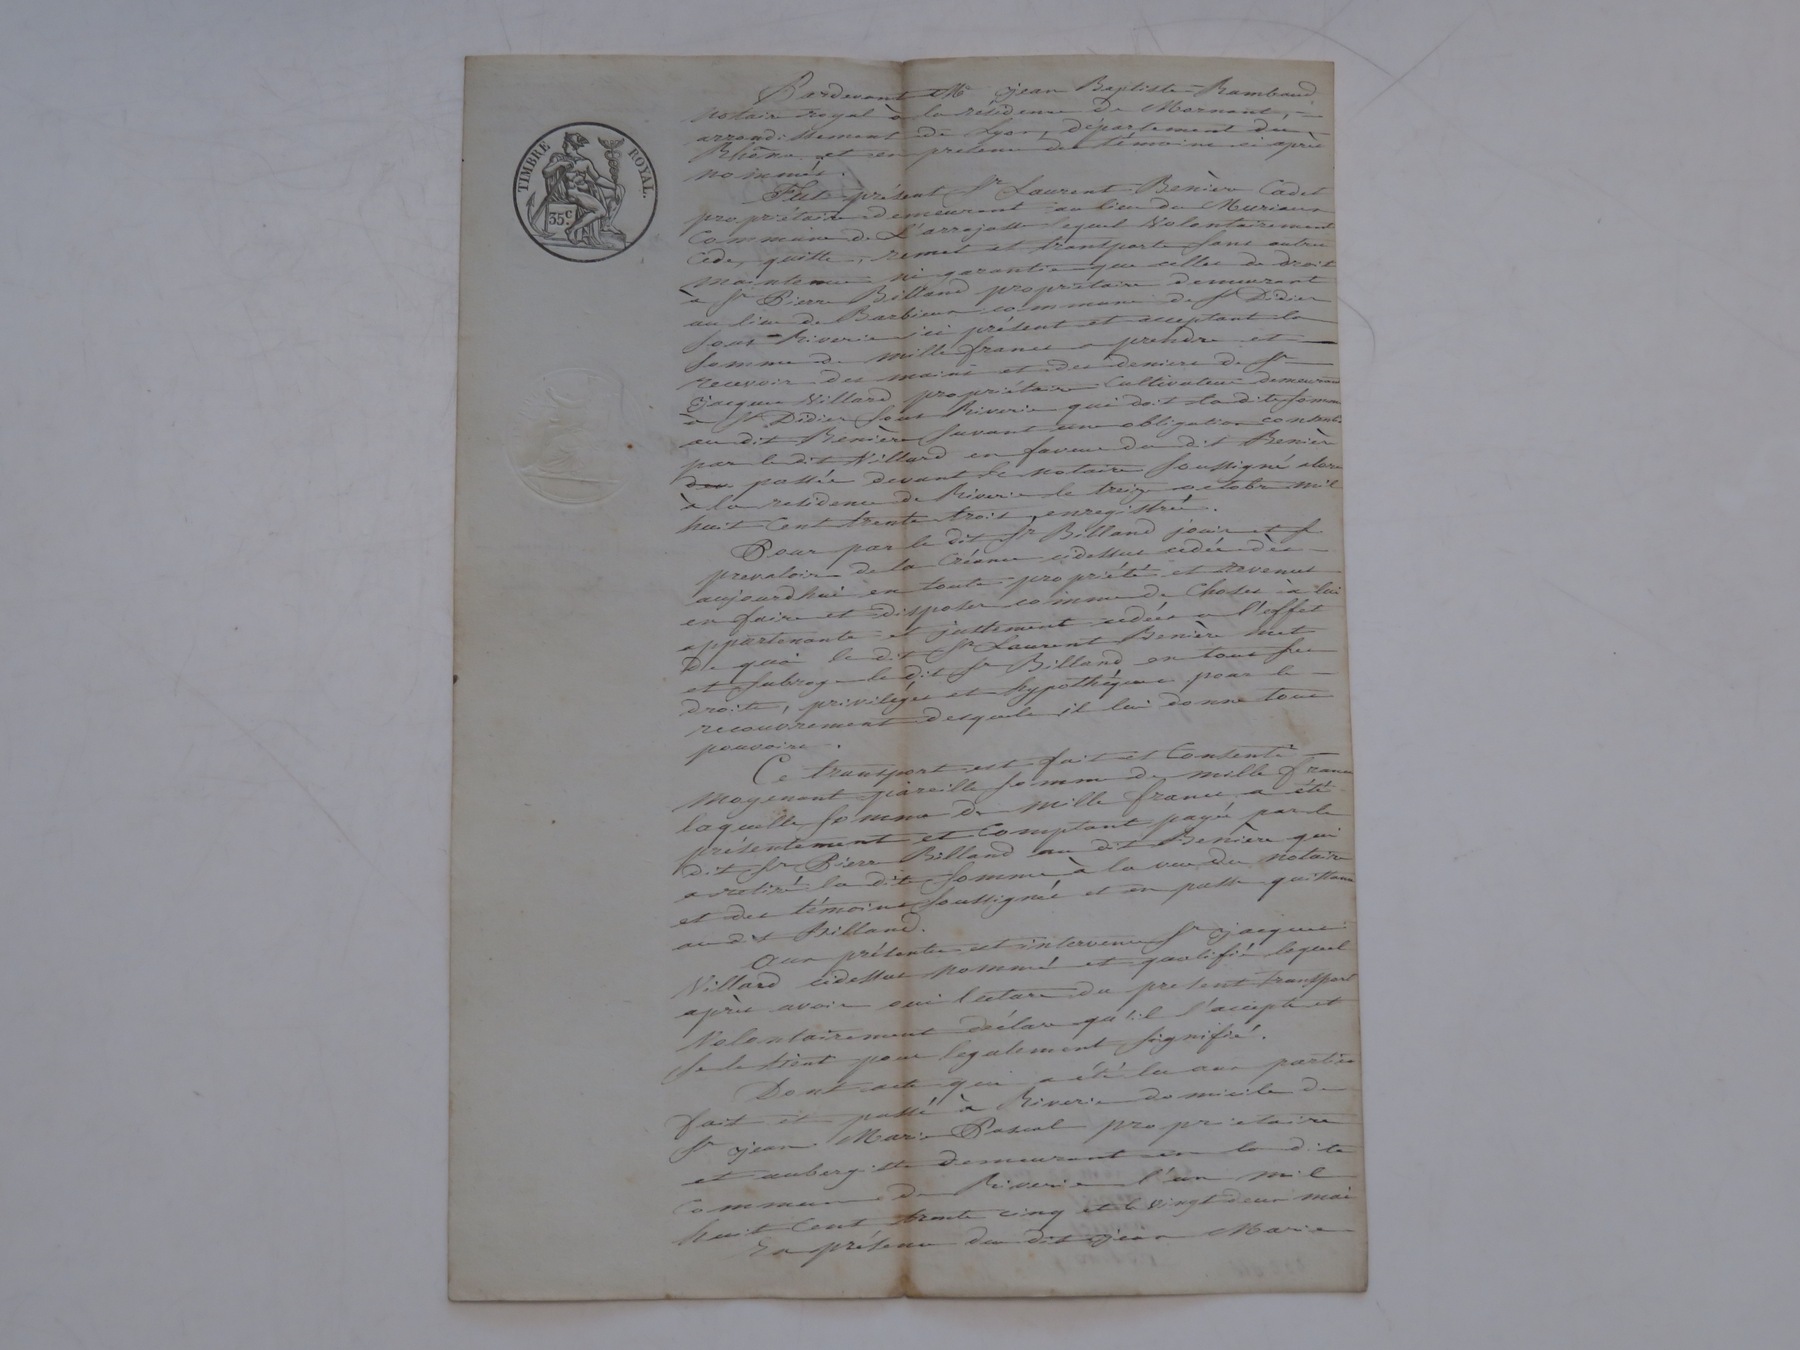 TIMBRE ROYAL.
35c.
Pardevant Me jean Baptiste Rambaud
notaire royal à la résidence de Mornant,
arrondissement de Lyon, département du
Rhône et en présence des témoins ci après
nommés.
Fut présent Sr Laurent Benière Cadet
propriétaire demeurant au lieu du
Commune de L'arrajasse lequel Volontairement
Cède, quitte, remet et transporte sans autre
maintenue ni garantie que celles de droit
à Sr Pierre Billand propriétaire demeurant
au lieu de Barbieux commune de St Didier
sous Riverie ici présent et acceptant la
somme de mille francs a prendre et
recevoir des mains et des deniers de Sr
jacques Villard propriétaire Cultivateur demeurant
à St Didier sous Riverie qui doit la dite somme
au dit Benière suivant une obligation consentie
par le dit Villard en faveur du dit Benière
passée devant le notaire soussigné alors
à la residence de Riverie le treize octobre mil
huit Cent trente trois, enregistrée.
Pour par le dit Sr Billand jouir et se
prevaloir de la Créance cidessus cédée dès
aujourdhui en toute propriété et revenus
en faire et disposer comme de Choses à lui
appartenante et justement cédées a l'effet
De quoi le dit Sr Laurent Benière met
et subroge le dit Sr Billand en tous ses
droits, privilèges et hypothèques pour le
recouvrement desquels il lui donne tous
pouvoirs.
Ce transport est fait et Consenti
Moyenant pareille somme de mille francs
laquelle somme de mille francs a été
présentement et Comptant payée par le
dit Sr Pierre Billand au dit Benière qui
a retiré la dite somme à la vue du notaire
et des témoins soussignés et en passe quittance
au dit Billand.
Aux présentes est intervenu Sr jacques
Villard cidessus nommé et qualifié lequel
après avoir oui lecture du présent transport
Volontairement déclare qu'il l'accepte et
se le tient pour légalement signifié.
Dont acte qui a été lu aux parties
fait et passé à Riverie domicile de
Sr jean Marie Pascal propriétaire
et aubergiste demeurant en la dite
Commune de Riverie l'an mil
huit Cent trente cinq et le vingt deux mai
En présence du dit jean Marie